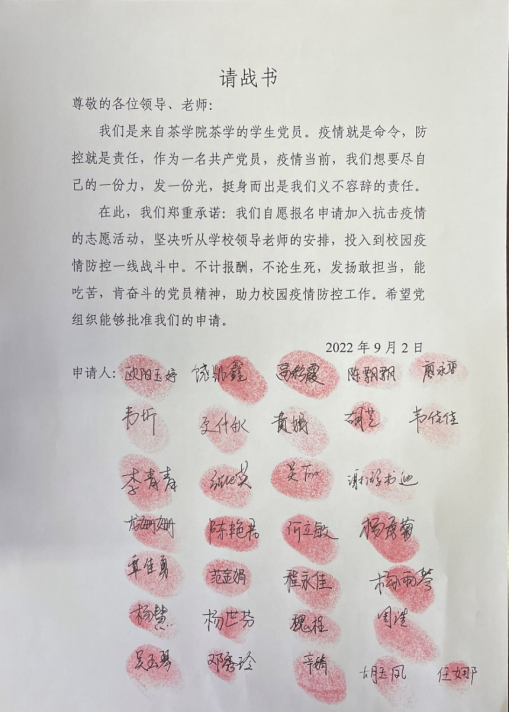 请战书
尊敬的各位领导、老师：
我们是来自茶学院茶学的学生党员。疫情就是命令，防
控就是责任，作为一名共产党员，疫情当前，我们想要尽自
己的一份力，发一份光，挺身而出是我们义不容辞的责任。
在此，我们郑重承诺：我们自愿报名申请加入抗击疫情
的志愿活动，坚决听从学校领导老师的安排，投入到校园疫
情防控一线战斗中。不计报酬，不论生死，发扬敢担当，能
吃苦，肯奋斗的党员精神，助力校园疫情防控工作。希望党
组织能够批准我们的申请。
2022 年 9 月 2 日
申请人：欧阳玉婷 陈飘飘
韦忻 韦佳佳
李青青 吴丽
陈艳君 何立敏
范金娟 程永佳
杨慧 杨世芬 魏程 周浩
邓秀玲 辛婧 胡玉凤 任如娜